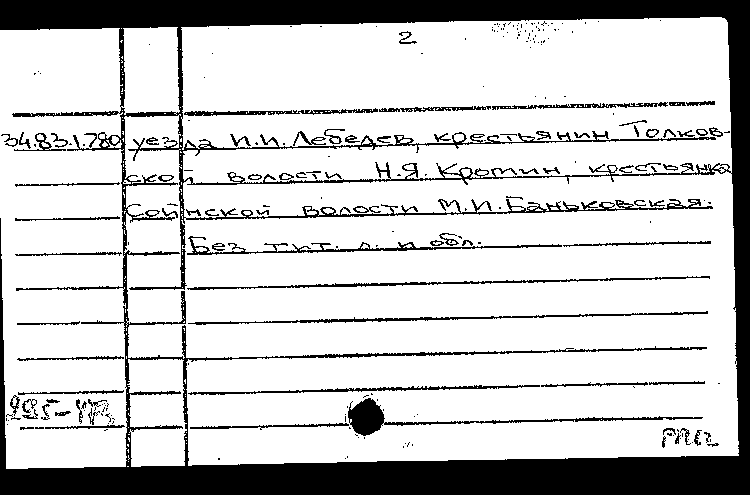 2
34.83.1.780 уезда И.И. Лебедев, крестьянин Толков-
ской волости Н.Я. Кротин, крестьянка
Сойнской волости М.И. Баньковская.
Без тит. л. и обл.